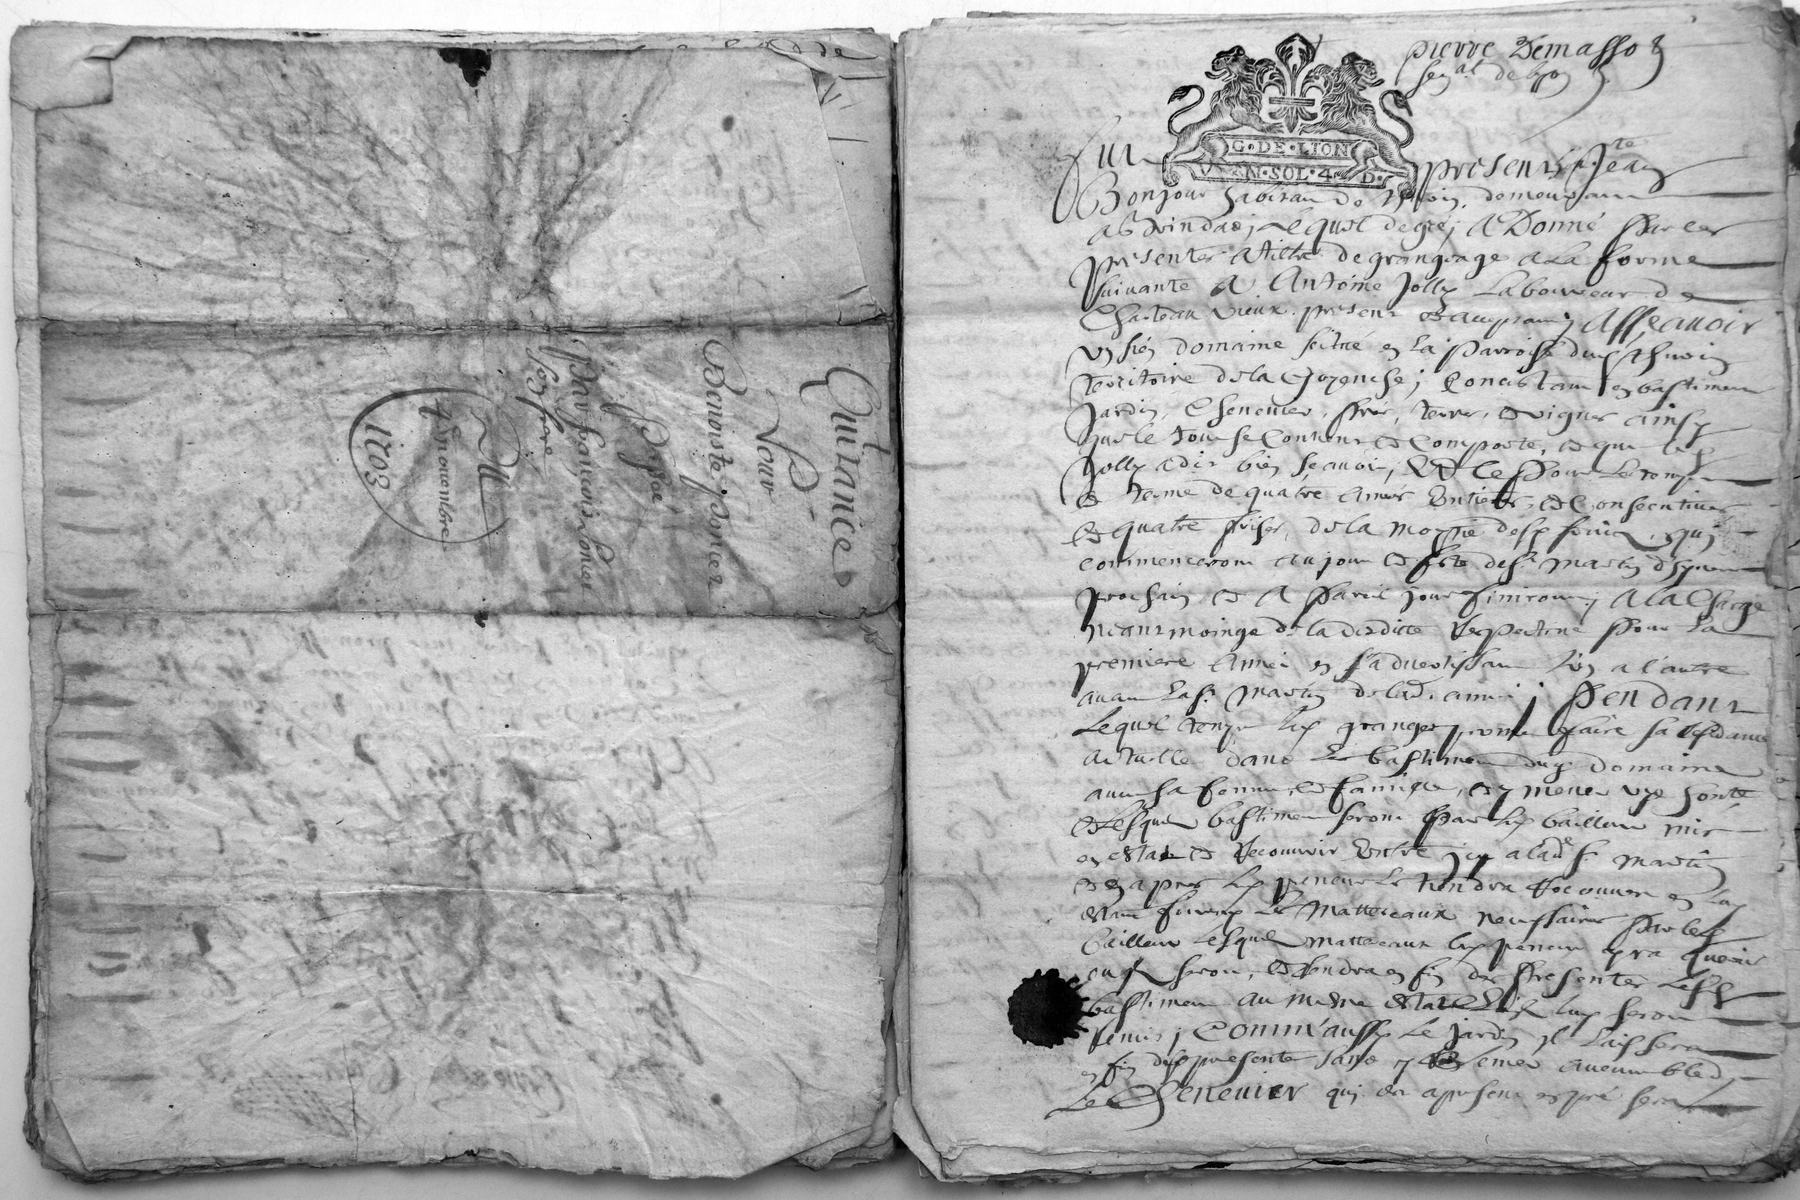 Quitance
Pour
Benoiste Ponier
Passé
Par francois Ponier
son frere
4 nouembre
1703
pierre Demasso
sen.al de lyon
G·DE·LION
N·SOL·4·D·
Fut present Jean
Bonjour habitan de demeurant
a lequel de gré a Donné Par ces
presentes a tiltre de grangeage a la forme
suiuante a Anthoine Jolly Laboureur de
Chasteau Vieux present et acceptant Assçauoir
un sien domaine scitué en la Parroisse dud
territoire de la Consistant en bastiment
Jardin, Cheneuier, Prés, terres, et vignes ainsy
que le tout se Contient et Comporte, et que led
Jolly a dit bien scauoir, Et ce Pour le temps
et terme de quatre années Entieres et Consecutiues
et quatre prises, de la moytié desd fruicts, qui
commenceront au jour et feste de St Martin d'hyuer
prochain et a Pareil jour finiront, A la Charge
neantmoings de la desdicte Respectiue Pour La
premiere année en s'aduertissant l'un a l'autre
auant La St Martin de lad. année; Pendant
Lequel temps led granger promet faire sa residance
actuelle dans Les bastiments dud Domaine
auec sa femme, et famille, et y mener vye honte
et Lesquels bastiments seront Par led bailleur mis
en estat et Recouuir Entre icy a lad St Martin
et en apres led preneur Le tiendra Recouuert en Luy
estant fourny Les Matteriaux necessaires Par led
bailleur Lesquels matteriaux led preneur yra querir
ou ilz seront, et rendra en fin des Presentes Lesd
bastiments au mesme Estat qu'ilz luy seront
remis; Comm'aussy Le Jardin il Laissera
en fin des presentes sans y semer aucun bled,
Le Cheneuier qui est apresent en pré sera